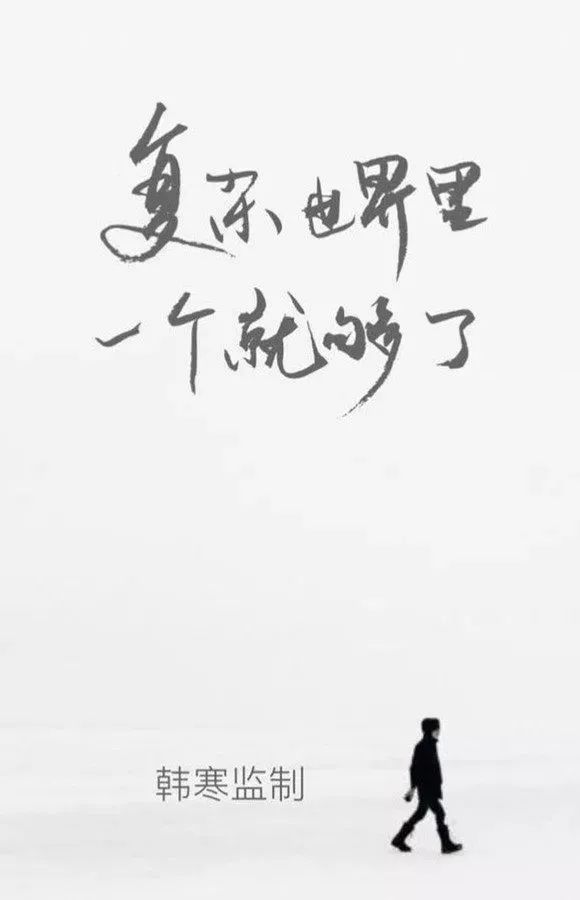 复杂世界里
一个就够了
韩寒监制